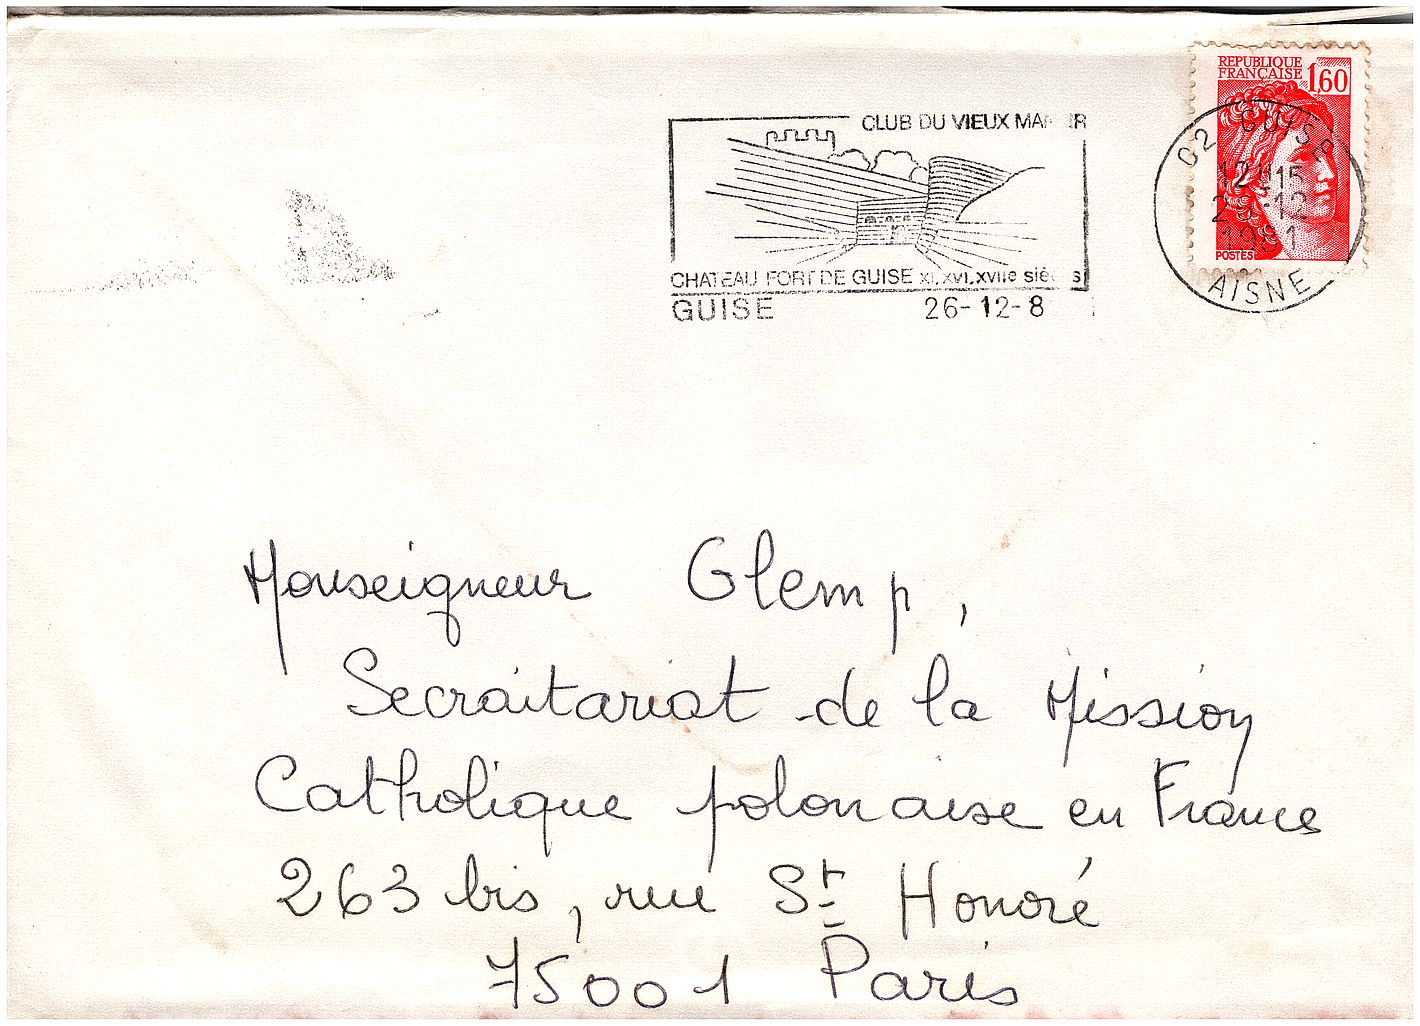 REPUBLIQUE
FRANÇAISE 1,60
POSTES
CLUB DU VIEUX MA
CHATEAU FORT DE GUISE XI, XVI, XVIIe siè s
GUISE 26-12-8
02 GUISE
12H15
2 -12
1981
AISNE
Monseigneur Glemp,
Secraitariat de la Mission
Catholique polonaise en France
263 bis, rue St Honoré
75001 Paris